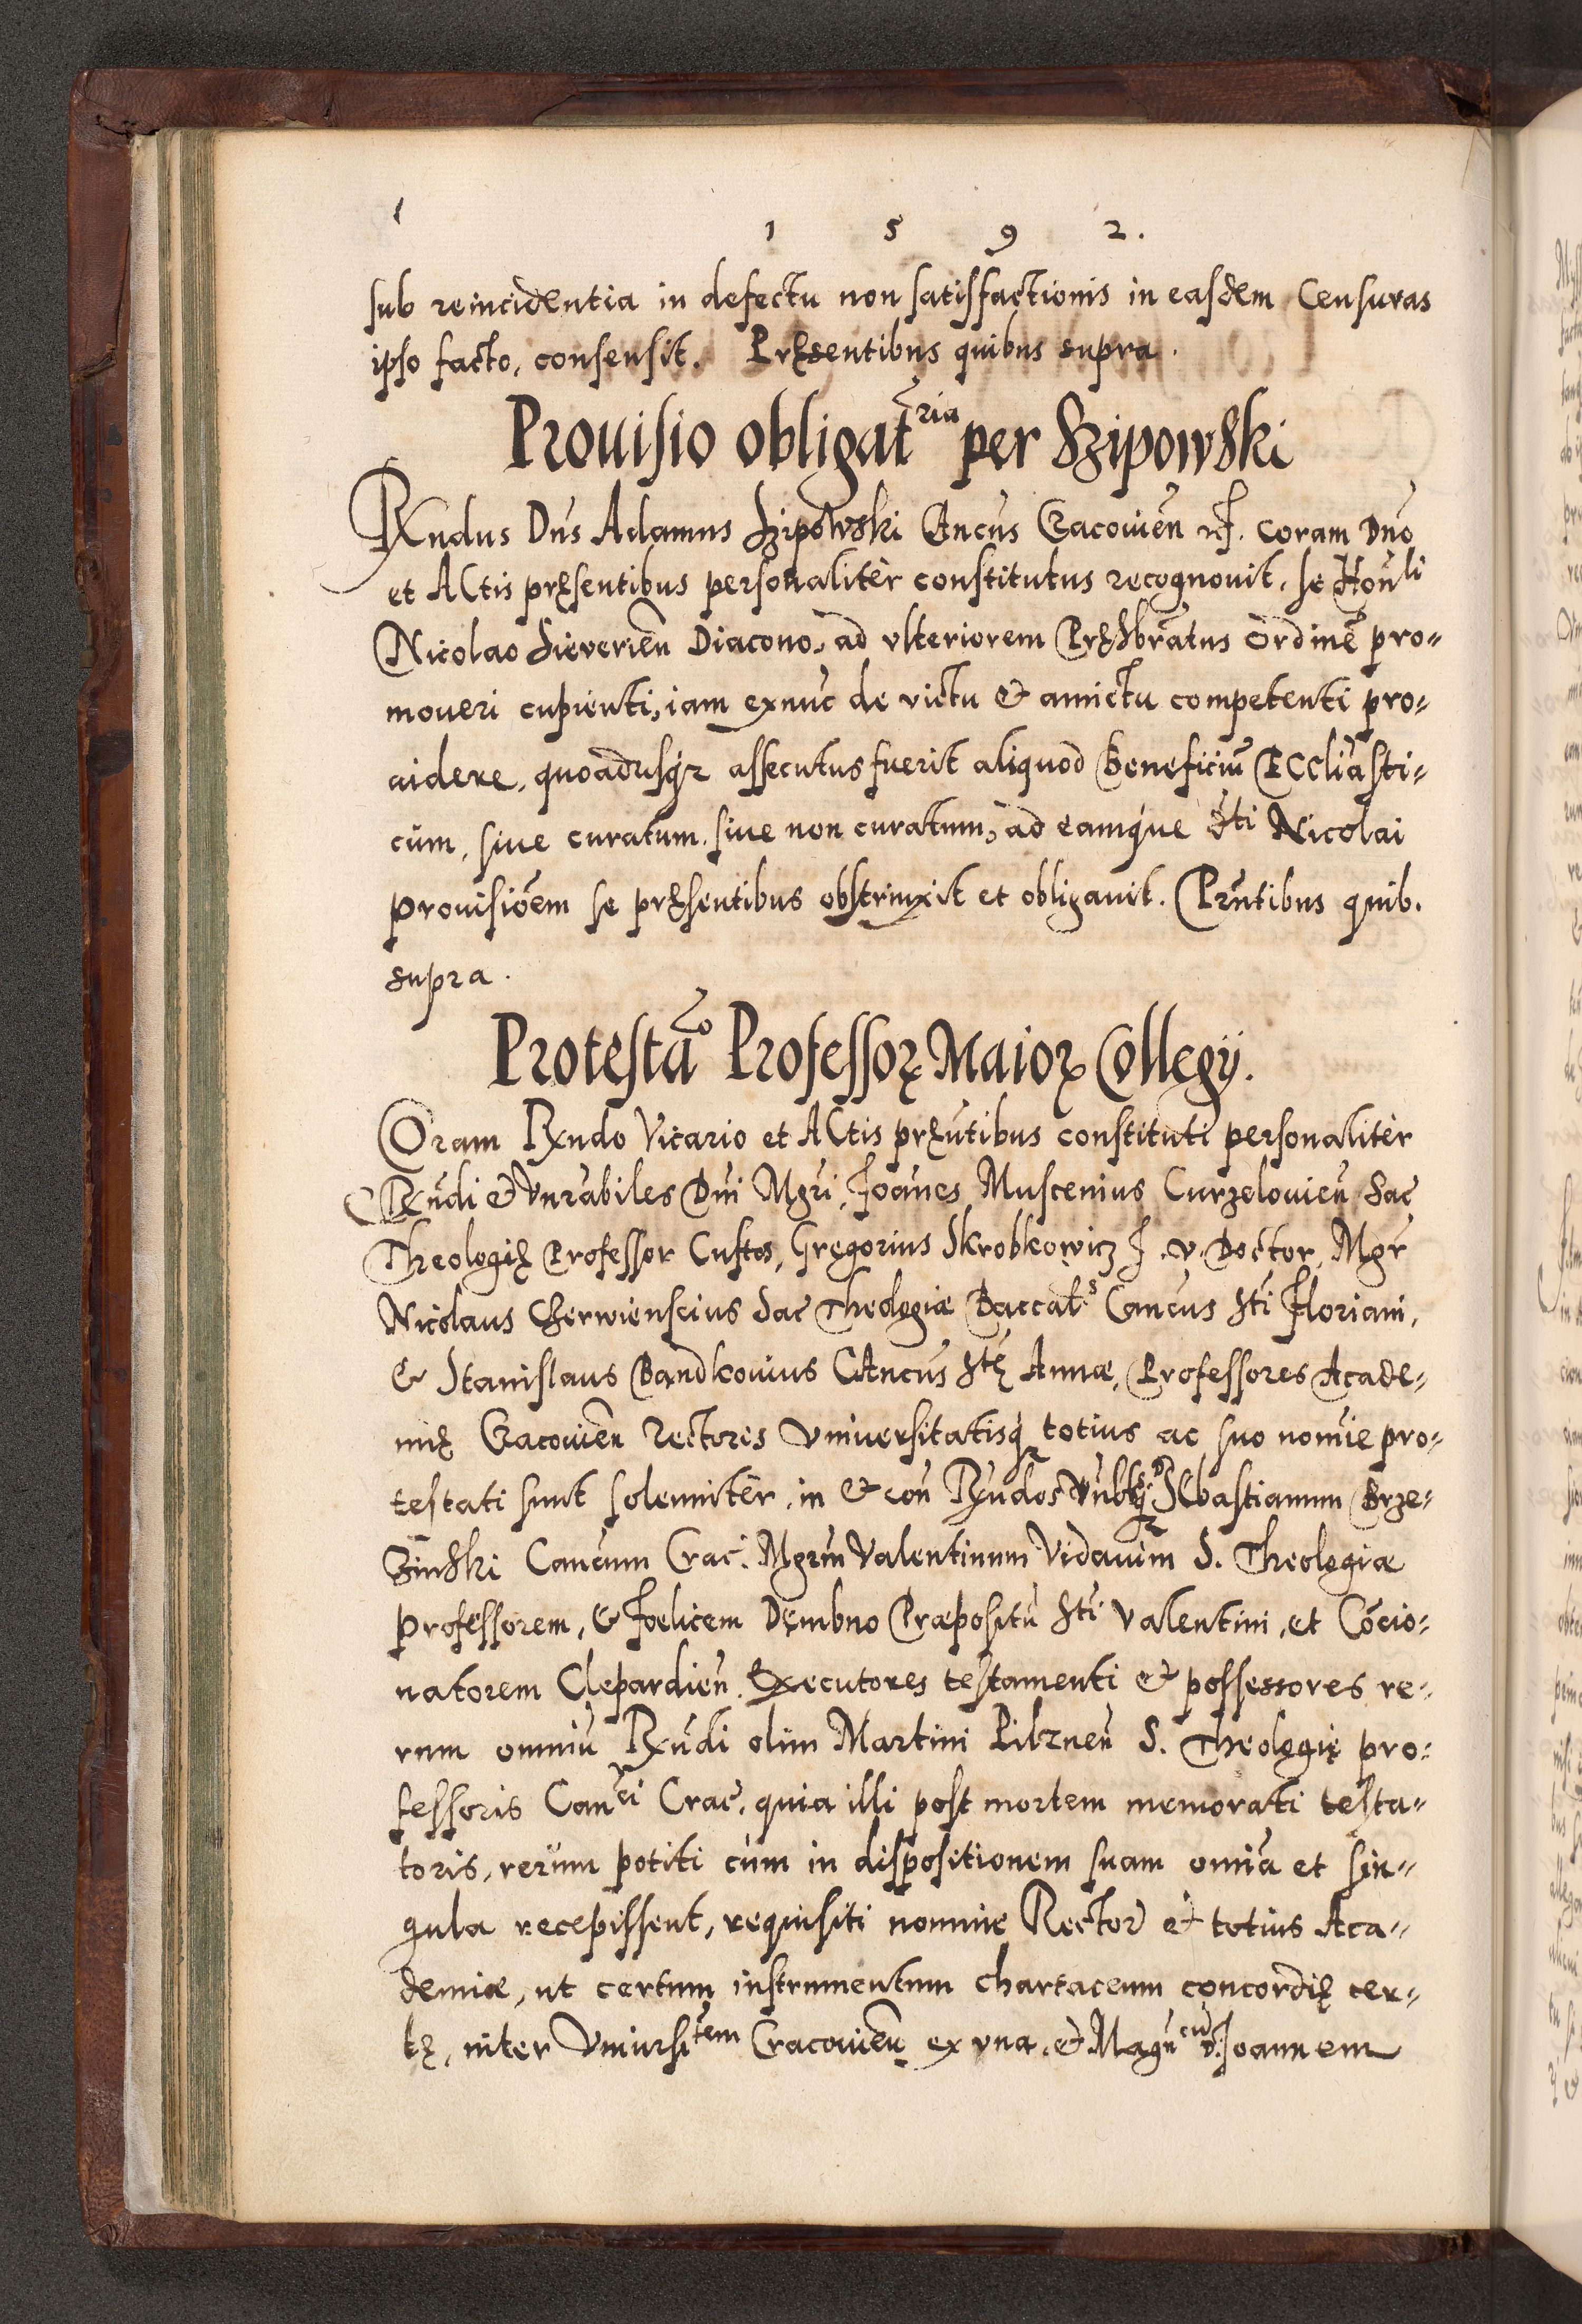 1 5 9 2.
sub reincidentia in defectu non satisfactionis in easdem Censuras
ipso facto, consensit. Pręsentibus quibus supra.
Prouisio obligat̄ria per Szipowski
Rndus Dn̄s Adamus Szipowski Cancūs Cracouien̄ coram Dn̄o
et Actis pręsentibus personaliter constitutus recognouit, se Hon̄li
Nicolao Sieverien̄ Diacono, ad vlteriorem Pręsbrātus Ordinē pro-
moueri cupienti, iam exnūc de victu & amictu competenti pro-
uidere, quoadusq̃ assecutus fuerit aliquod Beneficiū Eccliāsti-
cum, siue curatum, siue non curatum, ad eamque dti Nicolai
prouisiōem se pręsentibus obstrinxit et obligauit. Prn̄tibus quib.
supra.
Protestāo Professoꝝ Maioꝝ Collegÿ.
Coram Rxndo Vicario et Actis pręn̄tibus constituti personaliter
Rxn̄di & Vnrābiles Dn̄i Mgrī, Joānes Muscenius Curzelouien̄ Sac̄
Theologię Professor Custos, Gregorius Skrobkowicz J. v. Doctor, Mgr̄
Nicolaus Czerwienscius Sac̄ Theologiæ Baccal.s Cancūs Sti Floriani,
& Stanislaus Bandkouius Cancūs Stę Annæ, Professores Acade-
mię Cracouien̄ Rectoris Vniuersitatisq̃ totius ac suo nomīe pro-
testati sunt solenniter, in & con̄ Rxn̄dos Sebastianum Brze-
zinski Cancūm Crac̄. Mgrm̄ Valentinum Vidauim S. Theologiæ
professorem, & Foelicem Dembno Præpositū Sti Valentini, et Cōcio-
natorem Clepardien̄. Executores testamenti & possessores re-
rum omniū Rxn̄di olim Martini Pilznen̄ S. Theologię pro-
fessoris Cann̄ci Crac̄, quia illi post mortem memorati testa-
toris, rerum potiti cum in dispositionem suam omnīa et sin-
gula recepissent, requisiti nomine Rector̄ & totius Aca-
demiæ, ut certum instrumentum chartaceum concordię cer-
tę, inter Vniursitem Cracouien̄ ex vna, & Magn̄cū D. Joannem